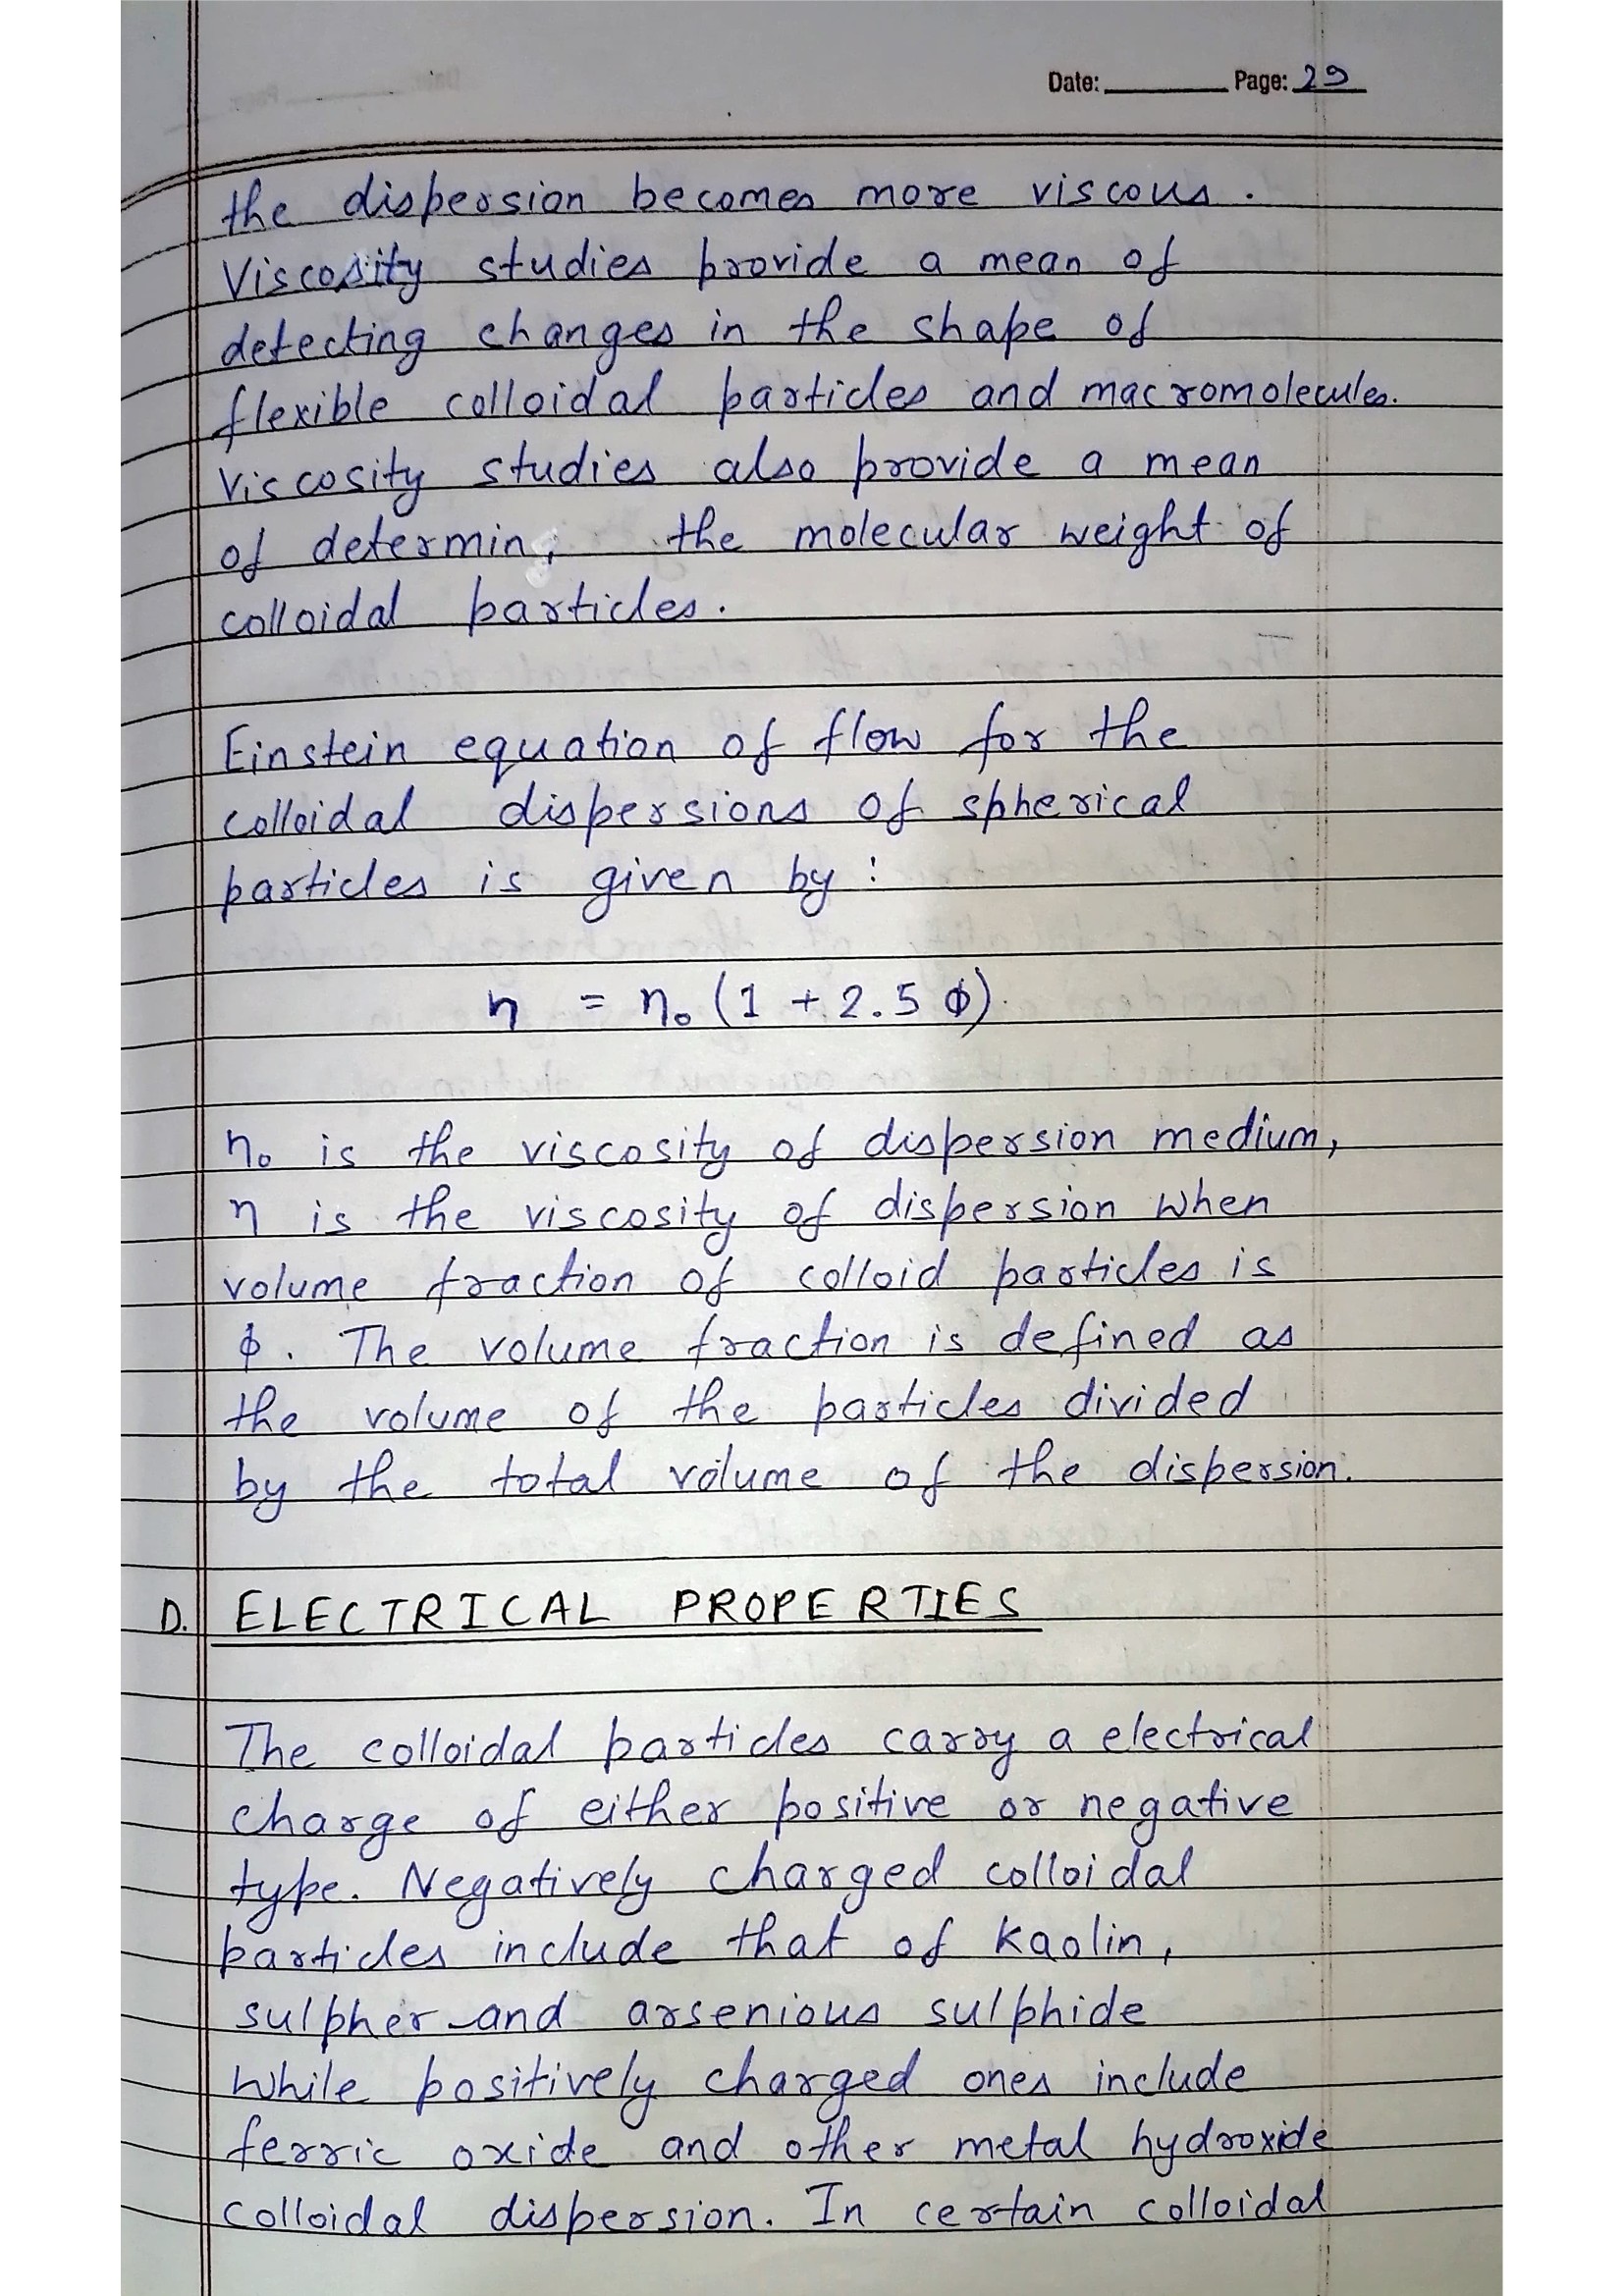 Date: Page: 29
the dispersion becomes more viscous.
Viscosity studies provide a mean of
detecting changes in the shape of
flexible colloidal particles and macromolecules.
Viscosity studies also provide a mean
of determin, the molecular weight of
colloidal particles.
Einstein equation of flow for the
colloidal dispersions of spherical
particles is given by :
η = η₀ (1 + 2.5 ϕ)
η₀ is the viscosity of dispersion medium,
η is the viscosity of dispersion when
volume fraction of colloid particles is
ϕ. The volume fraction is defined as
the volume of the particles divided
by the total volume of the dispersion.
D. ELECTRICAL PROPERTIES
The colloidal particles carry a electrical
charge of either positive or negative
type. Negatively charged colloidal
particles include that of kaolin,
sulpher and arsenious sulphide
while positively charged ones include
ferric oxide and other metal hydroxide
colloidal dispersion. In certain colloidal